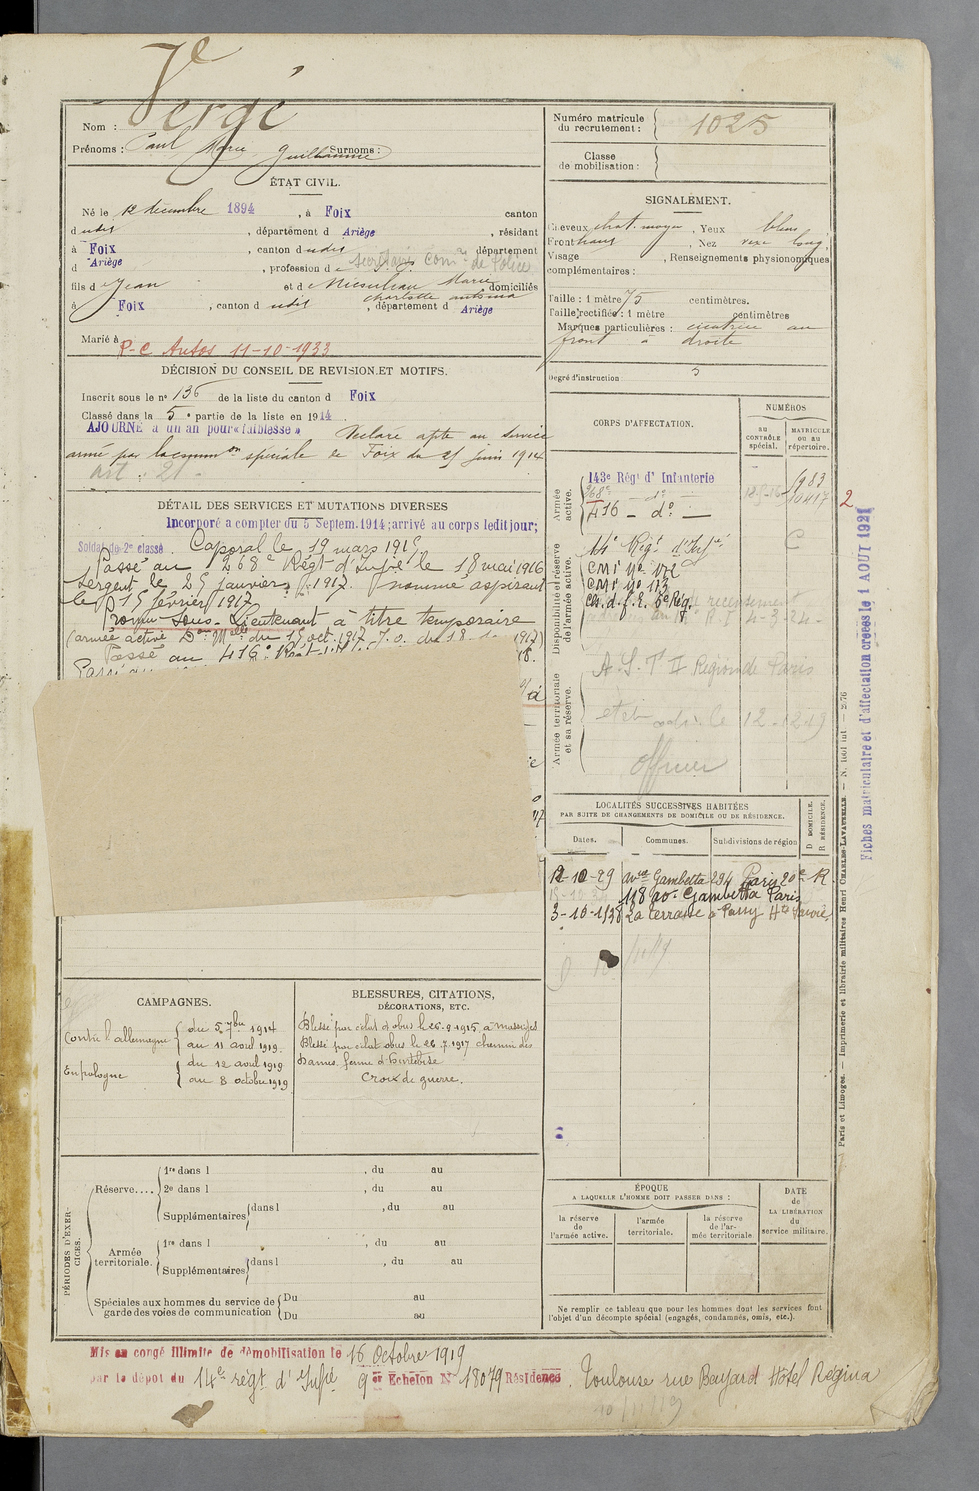 Vergé
Nom :
Prénoms : Paul Marie Guillaume Surnoms :
ÉTAT CIVIL.
Né le 12 décembre 1894, à Foix canton
dudit, département d Ariège, résidant
à Foix, canton dudit département
d Ariège, profession de Secrétaire Com.re de Police
fils de Jean et de Marie domiciliés
Charlotte
à Foix, canton dudit, département d Ariège
Marié à
R-C Autos 11-10-1933
DÉCISION DU CONSEIL DE REVISION ET MOTIFS.
Inscrit sous le n° 136 de la liste du canton d Foix
Classé dans la 5e partie de la liste en 1914.
AJOURNÉ à un an pour « faiblesse » Déclaré apte au service
armé par la comm.on spéciale de Foix du 25 juin 1914
art. 21 -
DÉTAIL DES SERVICES ET MUTATIONS DIVERSES
Incorporé a compter du 5 Septem. 1914; arrivé au corps ledit jour;
Soldat de 2e classe. Caporal le 19 mars 191
Passé au 268e Régt d'Infrie le 18 mai 1916
Sergent le 25 janvier 1917. nommé aspirant
le 15 février 1917
Promu Sous-Lieutenant à titre temporaire
(armée active Don Melle du 15 oct. 1917 J.o. du 18 1917)
Passé au 416e Régt
CAMPAGNES.
Contre l'allemagne { du 5 7bre 1914
au 11 avril 1919.
En pologne { du 12 avril 1919
au 8 octobre 1919
BLESSURES, CITATIONS,
DÉCORATIONS, ETC.
Blessé par éclat d'obus le 25.9.1915 à Massiges
Blessé par éclat obus le 26.7.1917 chemin des
Dames ferme d'Hurtebise
Croix de guerre.
PÉRIODES D'EXERCICES.
Réserve.... { 1re dans l , du au
2e dans l , du au
Supplémentaires { dans l , du au
Armée
territoriale. { 1re dans l , du au
Supplémentaires { dans l , du au
Spéciales aux hommes du service de { Du au
garde des voies de communication { Du au
Numéro matricule
du recrutement : 1025
Classe
de mobilisation :
SIGNALEMENT.
Cheveux chat. moyen, Yeux bleus
Front haut, Nez long
Visage , Renseignements physionomiques
complémentaires :
Taille : 1 mètre 75 centimètres.
Taille rectifiée : 1 mètre centimètres
Marques particulières : cicatrice au
front à droite
Degré d'instruction : 3
CORPS D'AFFECTATION.
NUMÉROS
au
CONTRÔLE
spécial.
MATRICULE
ou au
répertoire.
Armée
active.
143e Régt d'Infanterie 983
268e - do - 10417 2
416 - do -
Disponibilité et réserve
de l'armée active.
14e Régt d'Infrie C
CM I no 172
CM I no 173
Ch. d. f. R. 6e Rég.
Armée territoriale
et sa réserve.
A.S.T II Région de Paris
le 12-12-29
Officier
LOCALITÉS SUCCESSIVES HABITÉES
PAR SUITE DE CHANGEMENTS DE DOMICILE OU DE RÉSIDENCE.
Dates. Communes. Subdivisions de région
D DOMICILE.
R RÉSIDENCE.
12-10-29 Ave Gambetta 234 Paris 20e R
118 av. Gambetta Paris
3-10-1938 La terrasse à Passy Hte Savoie
ÉPOQUE
A LAQUELLE L'HOMME DOIT PASSER DANS :
la réserve
de
l'armée active.
l'armée
territoriale.
la réserve
de l'ar-
mée territoriale
DATE
de
LA LIBÉRATION
du
service militaire.
Ne remplir ce tableau que pour les hommes dont les services font
l'objet d'un décompte spécial (engagés, condamnés, omis, etc.).
Mis en congé illimité de démobilisation le 16 Octobre 1919
par le dépôt du 14e régt d'Infrie 9e Echelon N° 18079 Résidence. Toulouse rue Bayard Hôtel Régina
Fiches matriculaire et d'affectation créées le 1 AOUT 1921
Paris et Limoges. — Imprimerie et librairie militaires Henri CHARLES-LAVAUZELLE. — N. 1601 int — 2976